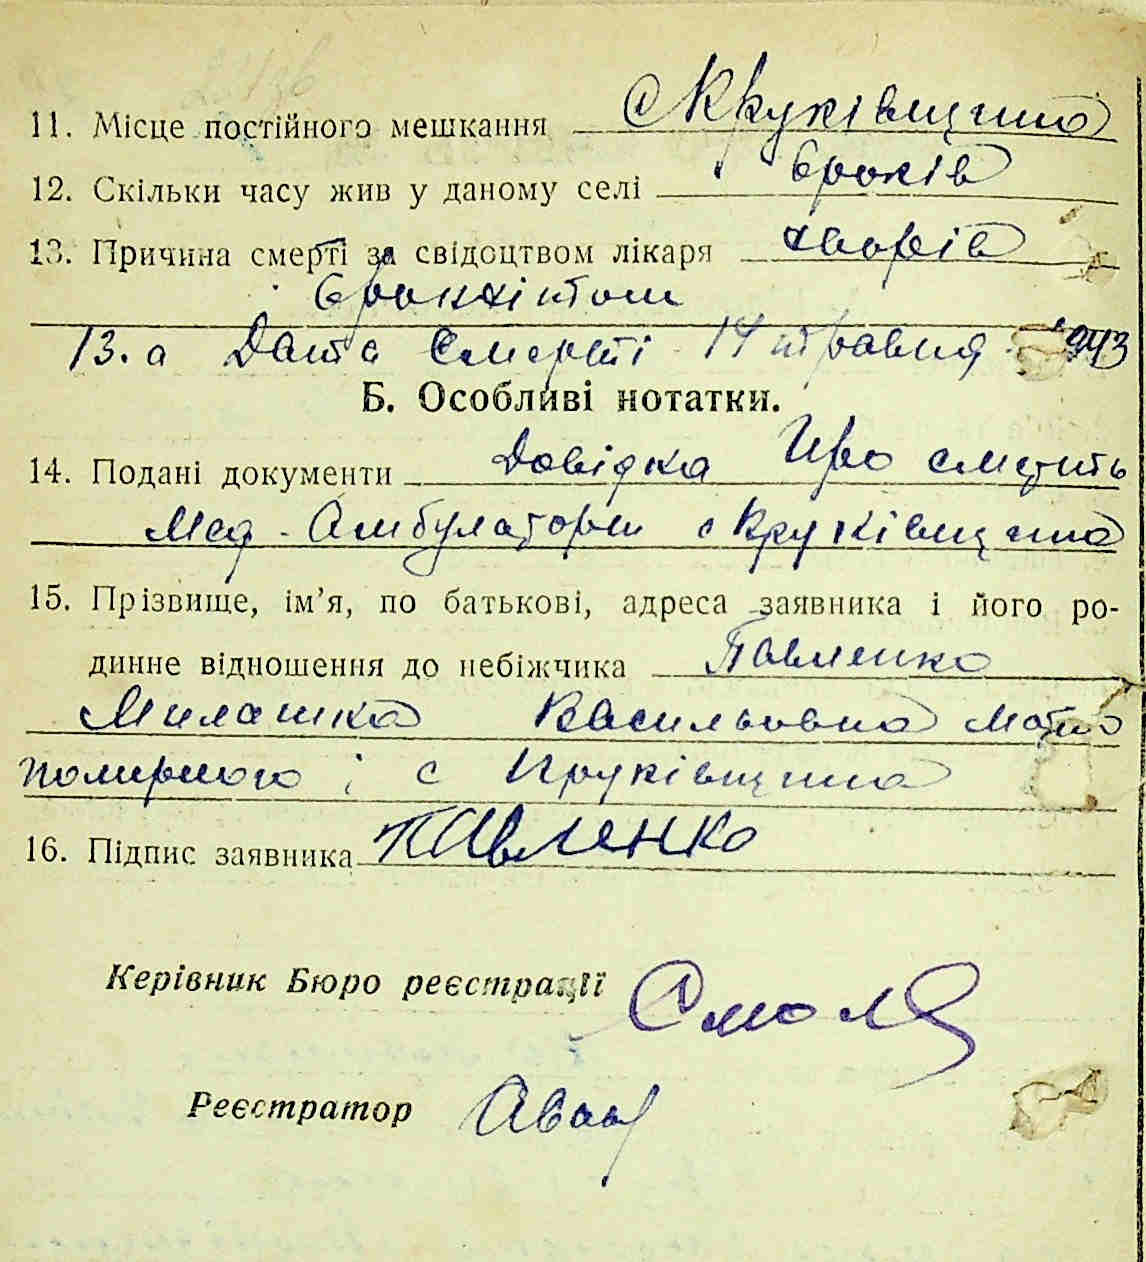 11. Місце постійного мешкання с Крюківщина
12. Скільки часу жив у даному селі 6 років
13. Причина смерті за свідоцтвом лікаря хворів
бронхітом
13.а Дата смерті 14 травня 1943
Б. Особливі нотатки.
14. Подані документи Довідка Про смерть
Мед-Амбулаторії с Круківщина
15. Прізвище, ім’я, по батькові, адреса заявника і його ро-
динне відношення до небіжчика Павленко
Милашка Васильовна мати
помершого і с Круківщина
16. Підпис заявника Павленко
Керівник Бюро реєстрації
Реєстратор